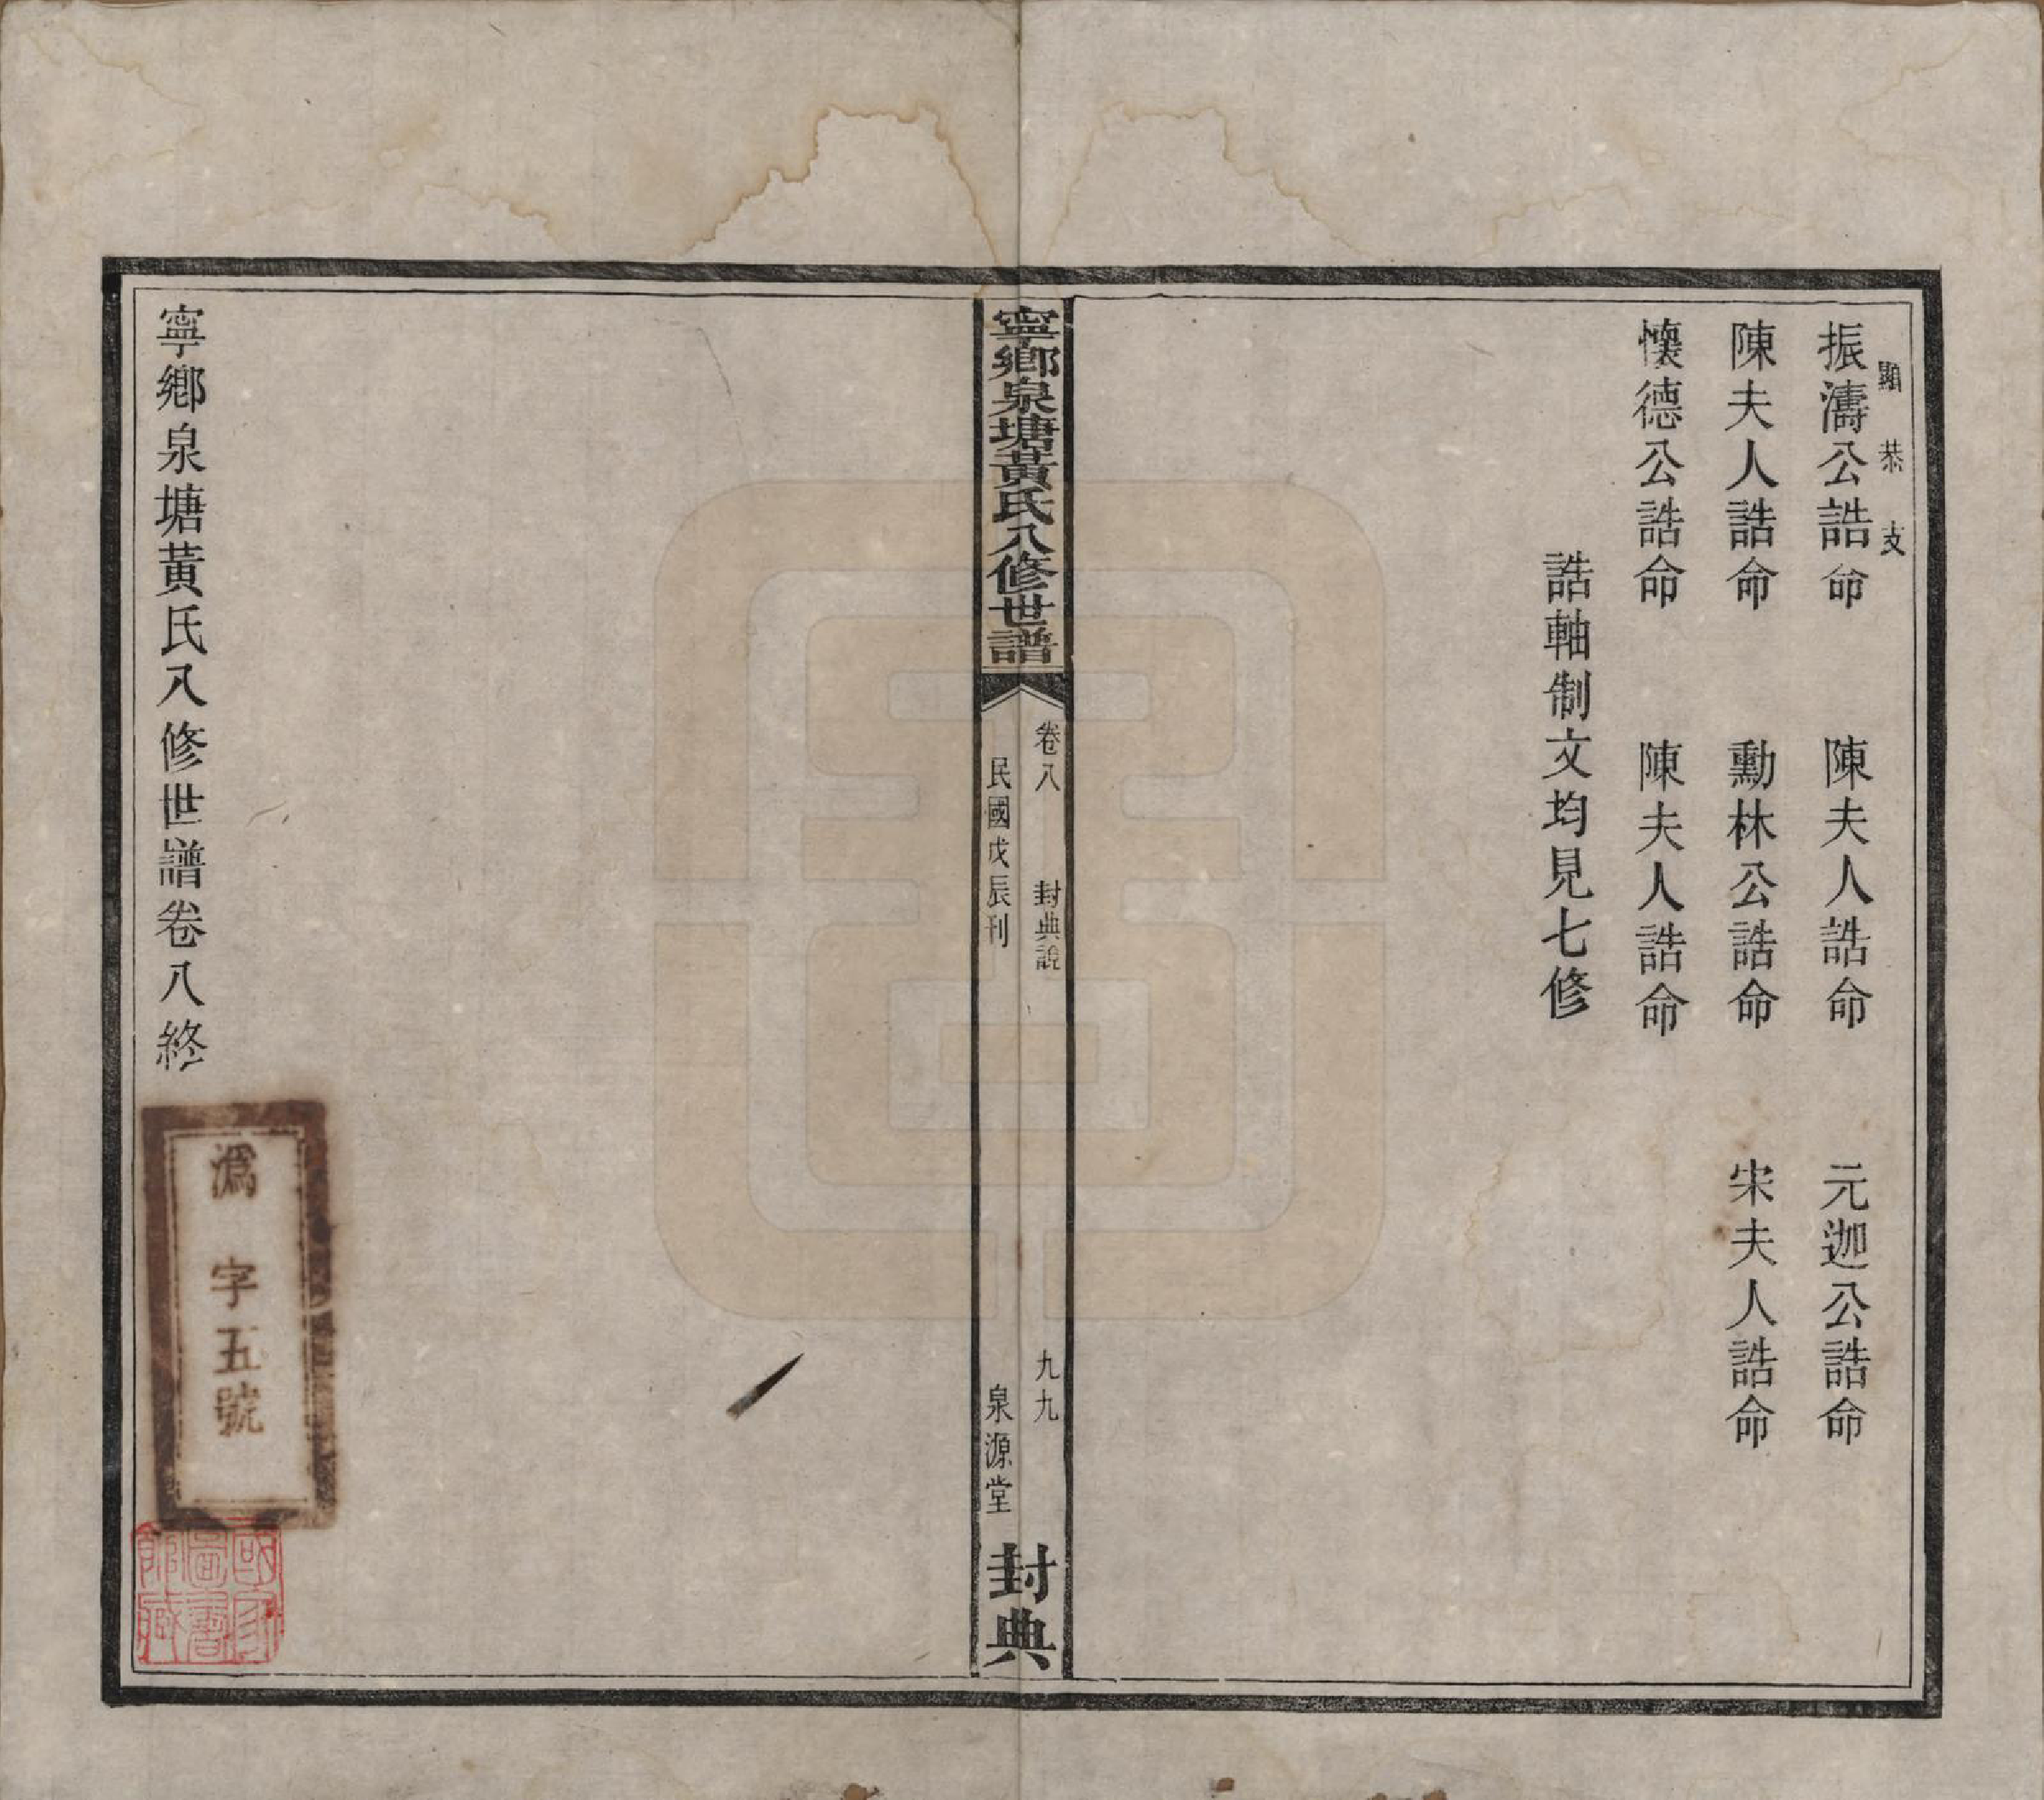 顯恭支
振濤公誥命　陳夫人誥命　元迦公誥命
陳夫人誥命　勳林公誥命　宋夫人誥命
懷德公誥命　陳夫人誥命
誥軸制文均見七修
寧鄉泉塘黃氏八修世譜
卷八　封典說　九九
民國戊辰刊　泉源堂
封典
寧鄉泉塘黃氏八修世譜卷八終
溈字五號
國家圖書館藏